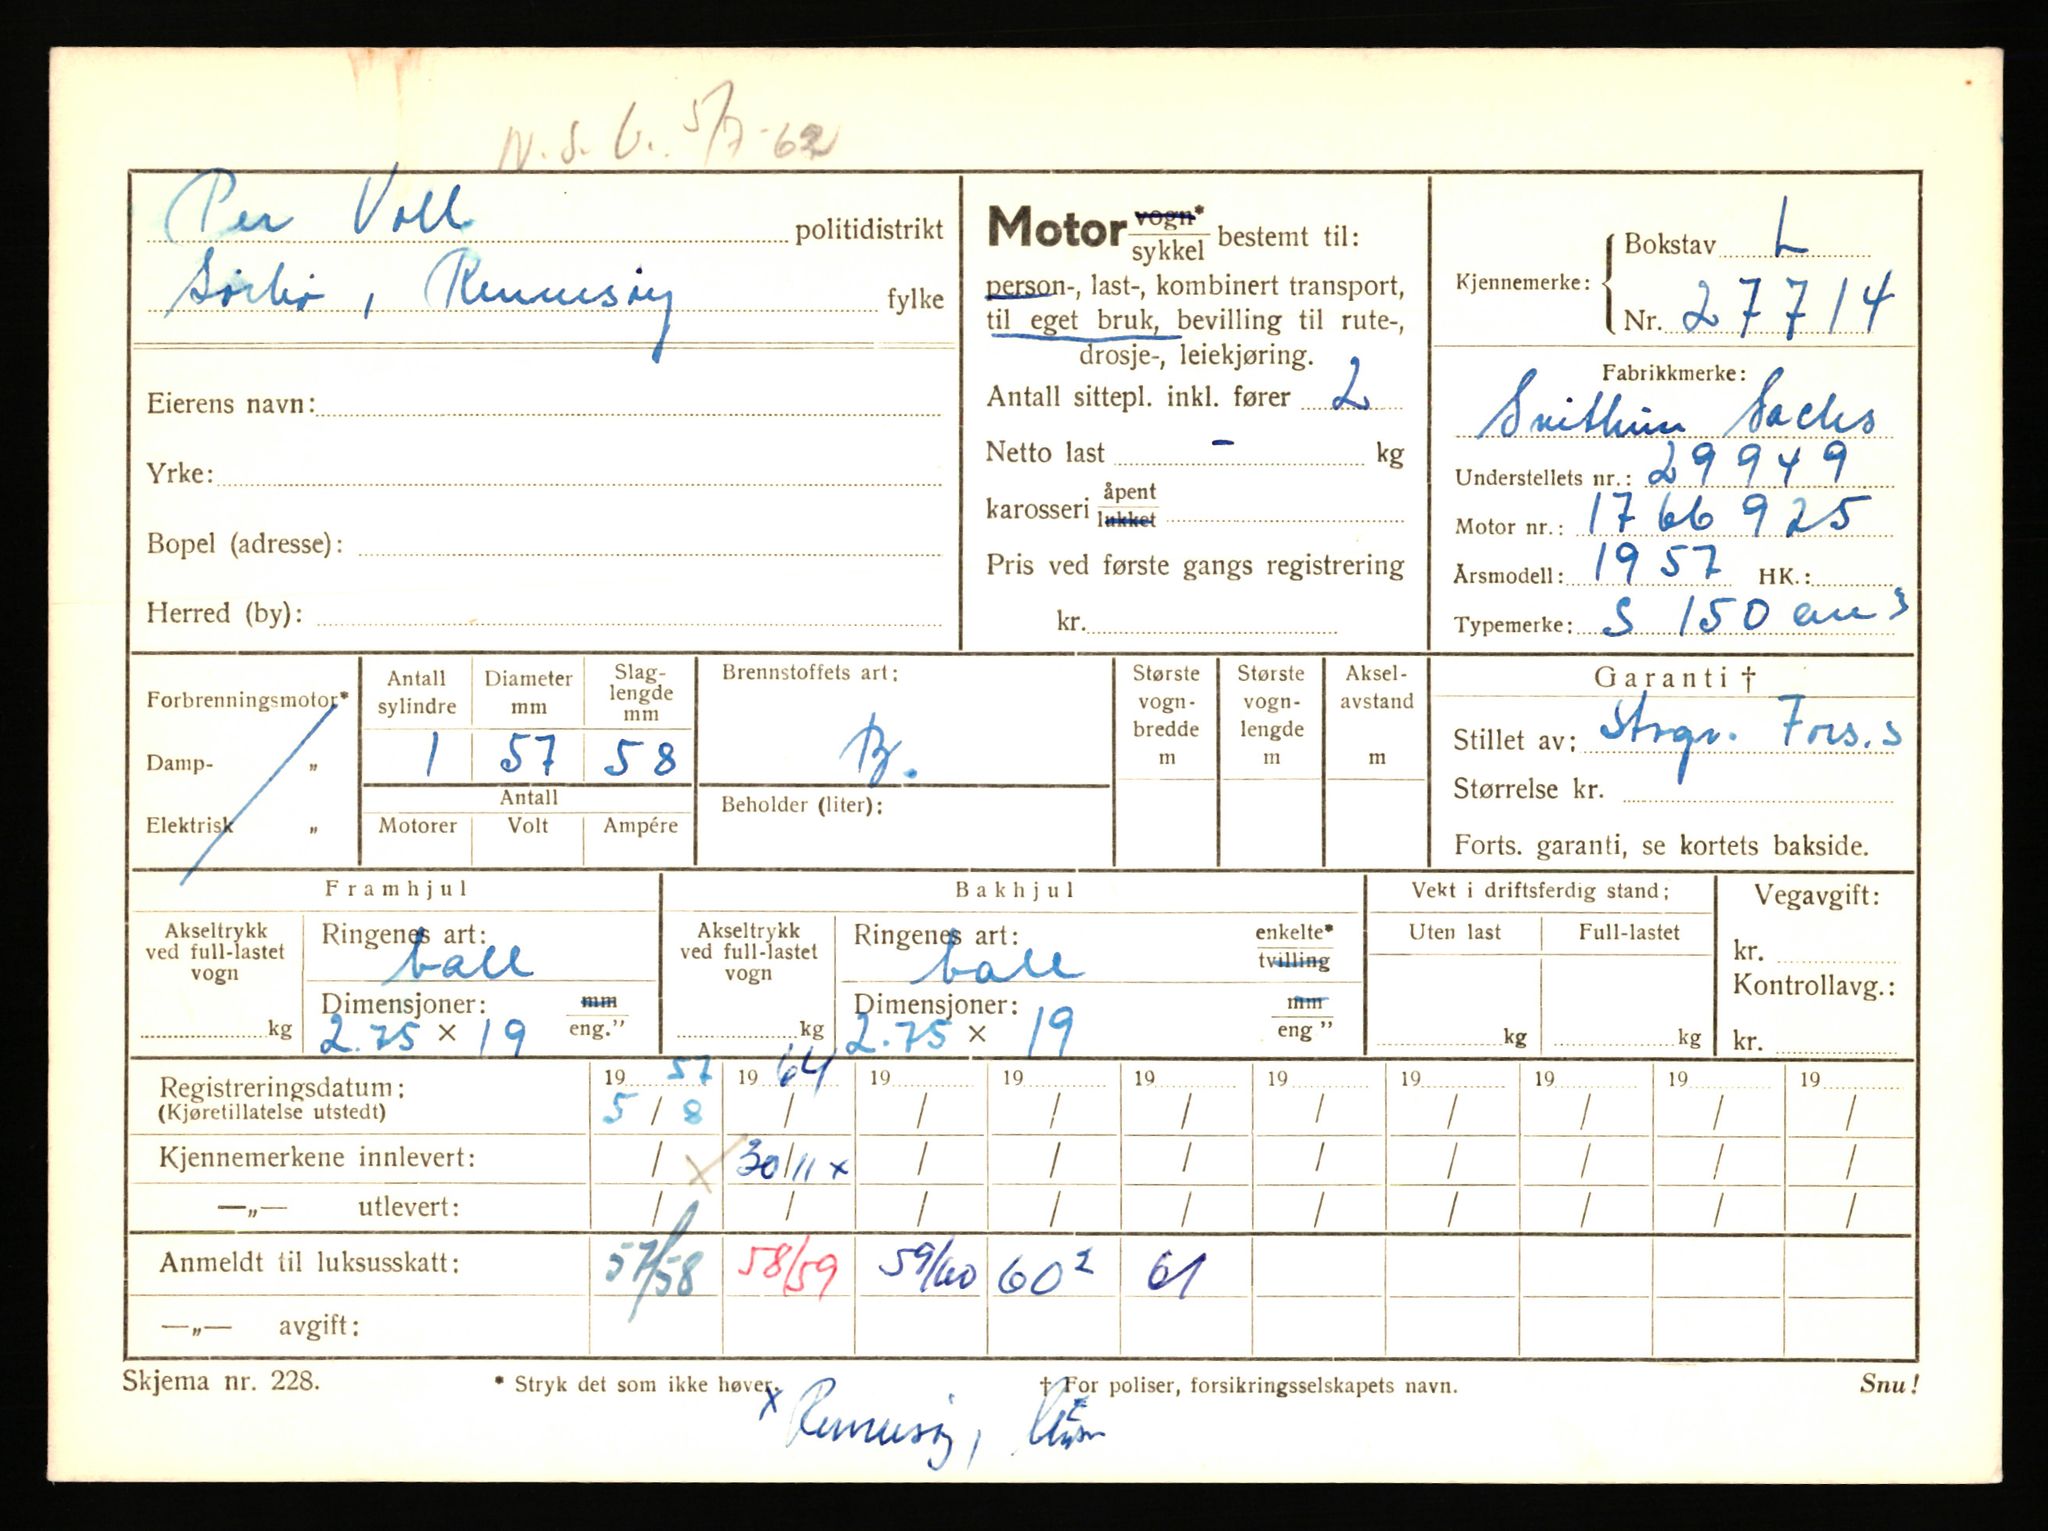 N. S. U. 5/7-62
Per Voll politidistrikt
Sörbö, Rennesöy fylke
Eierens navn:
Yrke:
Bopel (adresse):
Herred (by):
Motor vogn* sykkel bestemt til:
person-, last-, kombinert transport,
til eget bruk, bevilling til rute-,
drosje-, leiekjøring.
Antall sittepl. inkl. fører 2
Netto last - kg
karosseri åpent lukket
Pris ved første gangs registrering
kr.
Kjennemerke: Bokstav L
Nr. 27714
Fabrikkmerke:
Svithun Sachs
Understellets nr.: 29949
Motor nr.: 1766925
Årsmodell: 1957 HK.:
Typemerke: S 150 cm3
Forbrenningsmotor*
Damp- „
Elektrisk „
Antall sylindre Diameter mm Slag-lengde mm
1 57 58
Antall
Motorer Volt Ampére
Brennstoffets art:
B.
Beholder (liter):
Største vogn-bredde m
Største vogn-lengde m
Aksel-avstand m
Garanti †
Stillet av: Fors.s
Størrelse kr.
Forts. garanti, se kortets bakside.
Framhjul
Akseltrykk ved full-lastet vogn kg
Ringenes art:
ball
Dimensjoner: mm eng.”
2.75 × 19
Bakhjul
Akseltrykk ved full-lastet vogn kg
Ringenes art: enkelte* tvilling
ball
Dimensjoner: mm eng ”
2.75 × 19
Vekt i driftsferdig stand;
Uten last Full-lastet
kg kg
Vegavgift:
kr.
Kontrollavg.:
kr.
Registreringsdatum: 19 57 19 64 19 19 19 19 19 19 19 19
(Kjøretillatelse utstedt) 5 / 8 / / / / / / / / /
Kjennemerkene innlevert: / x 30/11 x / / / / / / / /
—„— utlevert: / / / / / / / / / /
Anmeldt til luksusskatt: 57/58 58/59 59/60 60² 61
—„— avgift:
Skjema nr. 228. * Stryk det som ikke høver. † For poliser, forsikringsselskapets navn. Snu!
x Rennesöy,